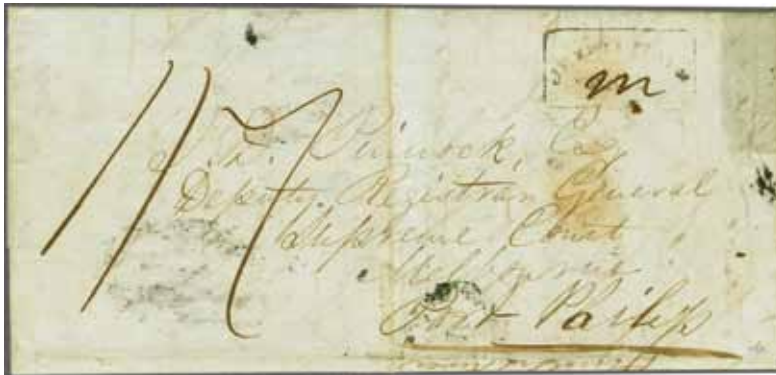 m
1/7
J. D. Pinnock, Esq
Deputy Registrar General
Supreme Court
Melbourne
Port Philip